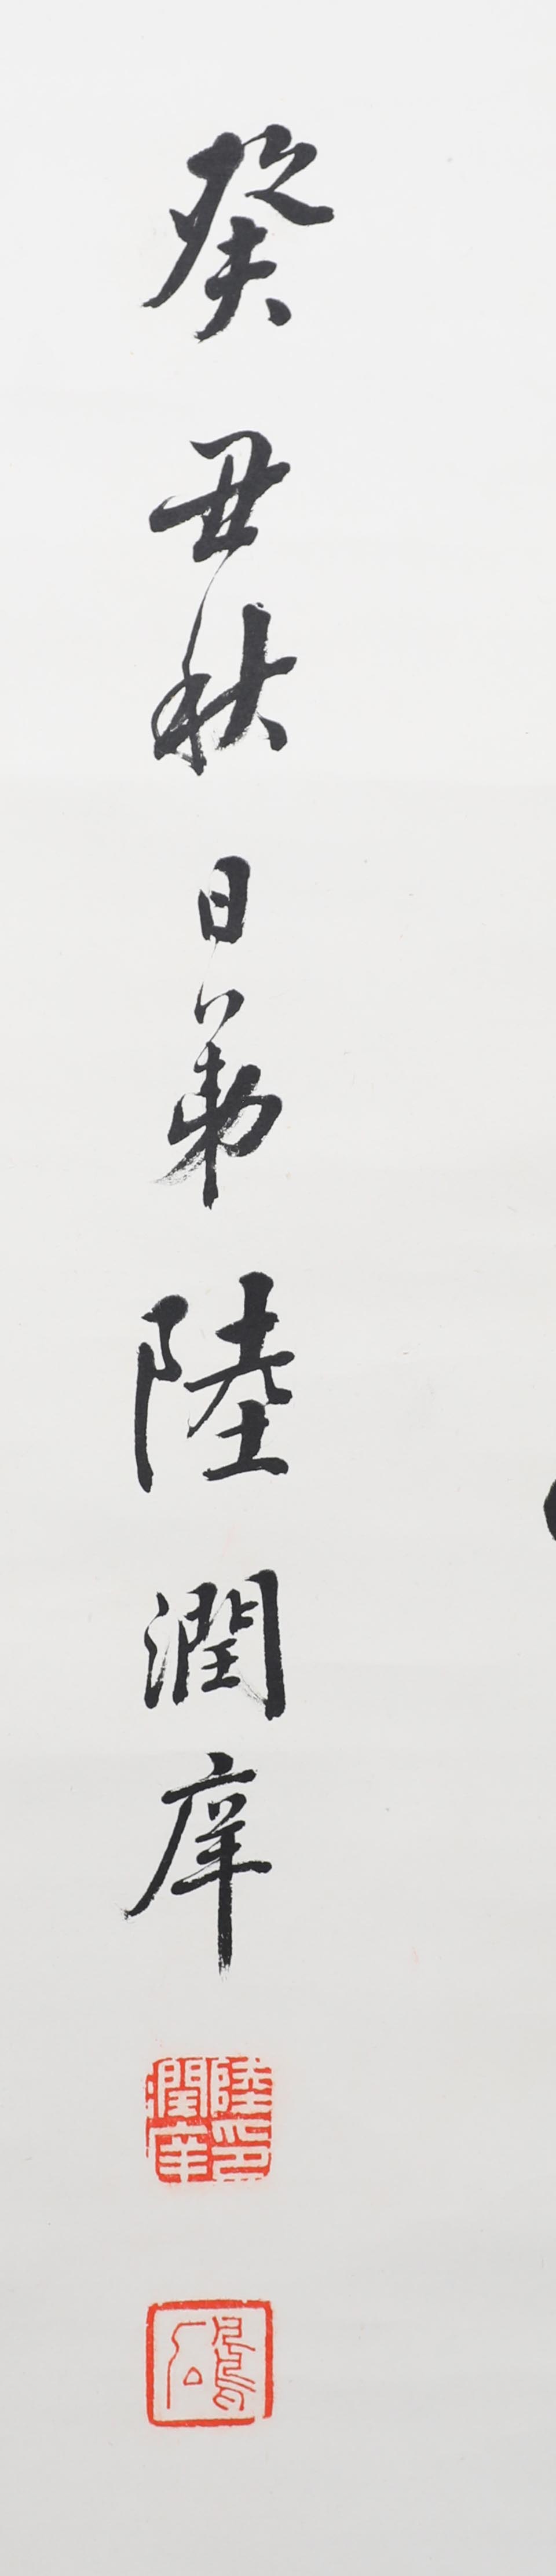 癸丑秋日弟陸潤庠
陸印潤庠